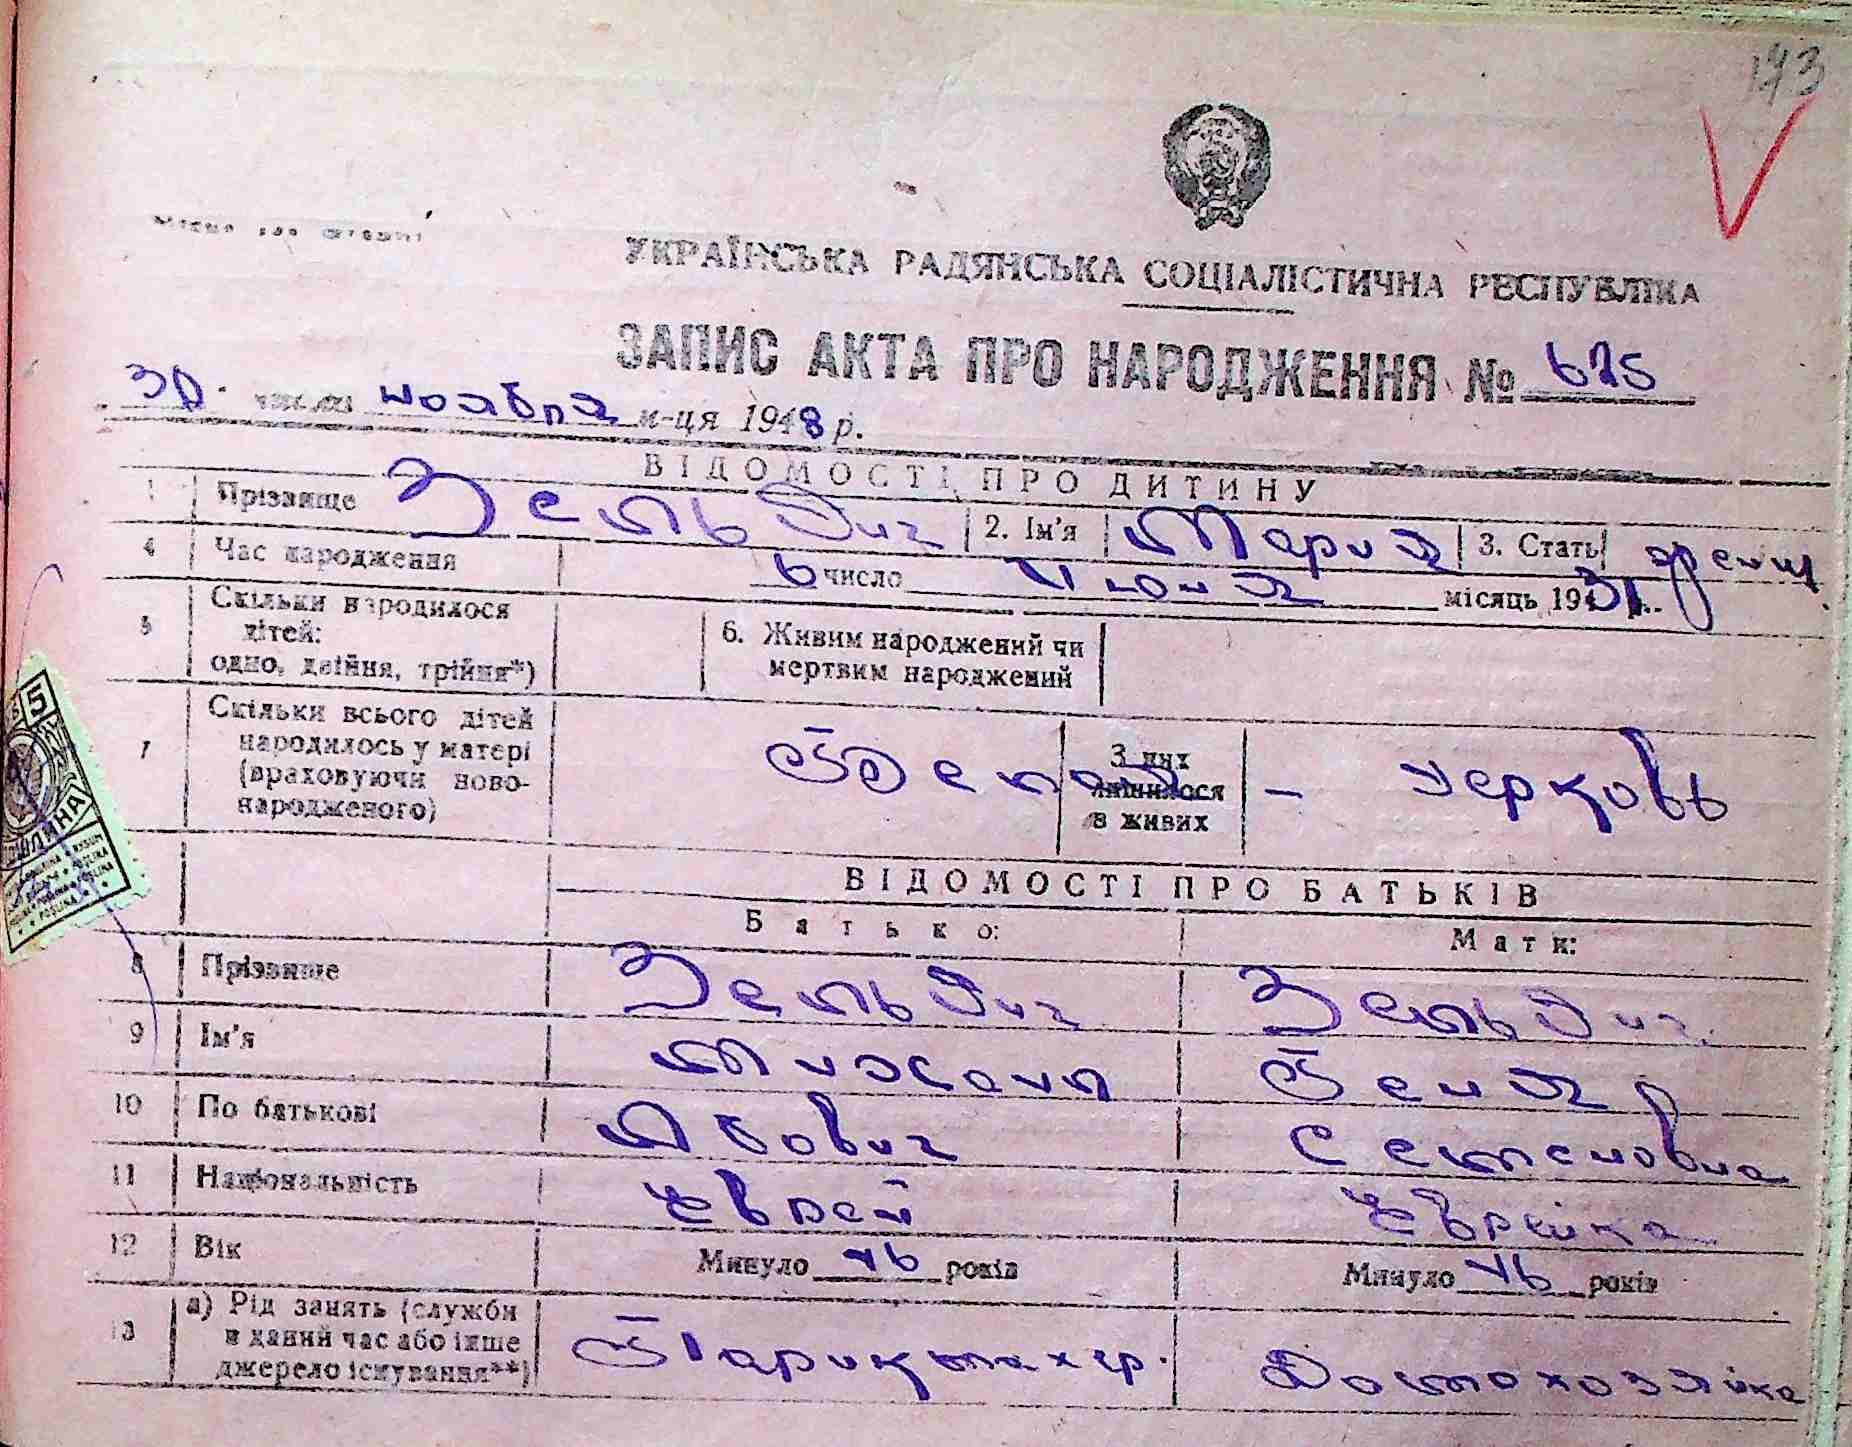 173
УКРАЇНСЬКА РАДЯНСЬКА СОЦІАЛІСТИЧНА РЕСПУБЛІКА
ЗАПИС АКТА ПРО НАРОДЖЕННЯ № 675
30. числа ноября м-ця 1948 р.
ВІДОМОСТІ ПРО ДИТИНУ
1 Прізвище Зельдич 2. Ім'я Мария 3. Стать женщ.
4 Час народження 6 число Июня місяць 1931
5 Скільки народилося дітей: одно, двійня, трійня*) 6. Живим народжений чи мертвим народжений
7 Скільки всього дітей народилось у матері (враховуючи новонародженого) З них лишилося в живих – Церковь
ВІДОМОСТІ ПРО БАТЬКІВ
Батько: Мати:
8 Прізвище Зельдич Зельдич
9 Ім'я Михаил
10 По батькові Абович Семеновна
11 Національність Еврей Еврейка
12 Вік Минуло 46 років Минуло 46 років
13 а) Рід занять (служби в даний час або інше джерело існування**) Парикмахер. Домохозяйка
5